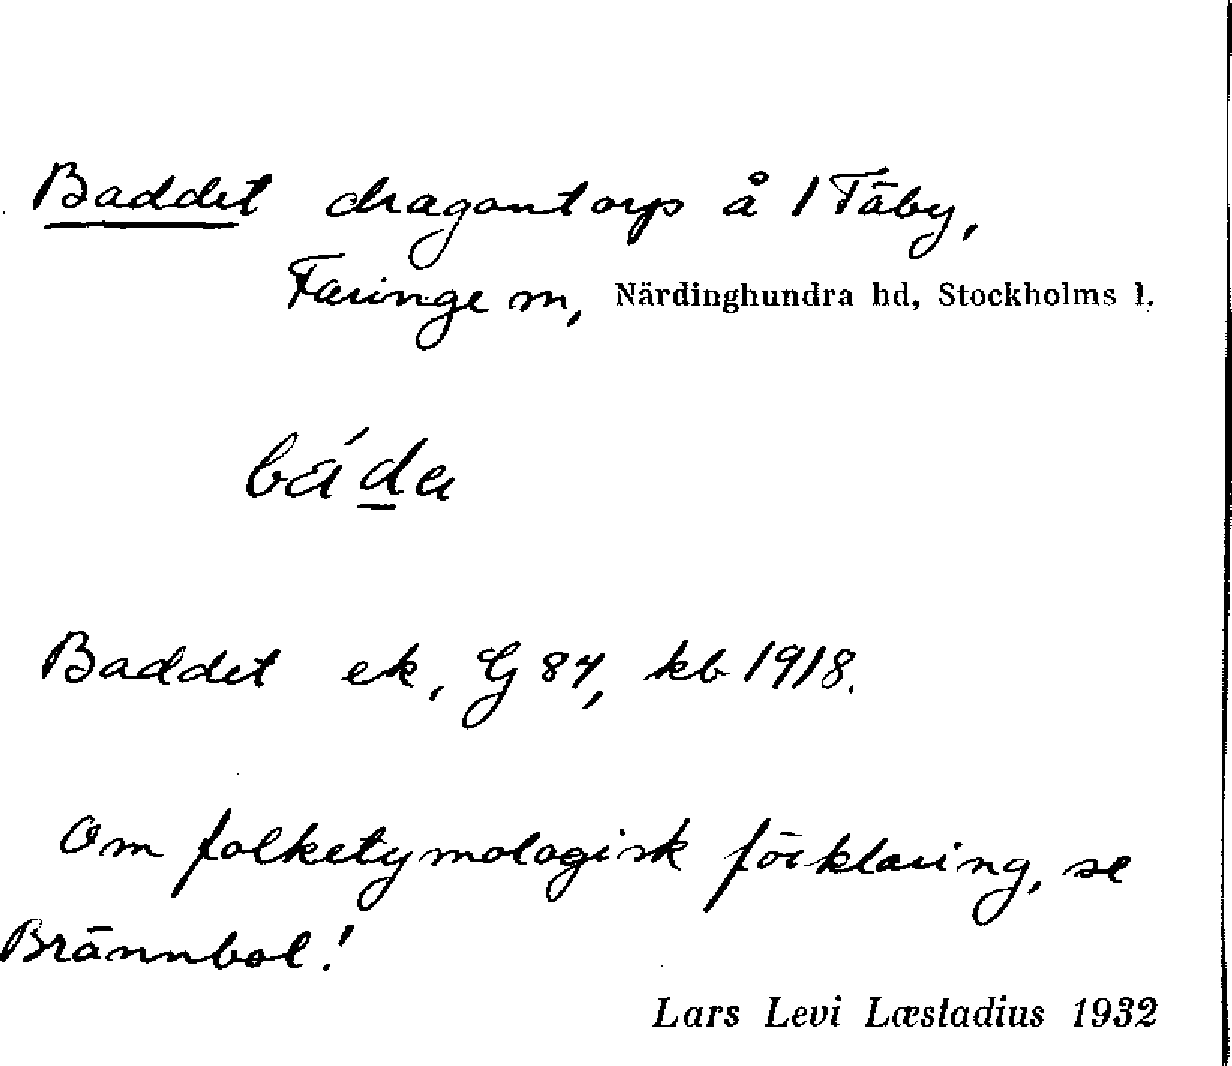 Baddet dragontorp å 1 Täby,
Faringe sn, Närdinghundra hd, Stockholms l.
bád̲a
Baddet ek, G 84, kb 1918.
Om folketymologisk förklaring, se
Brännbol!
Lars Levi Læstadius 1932